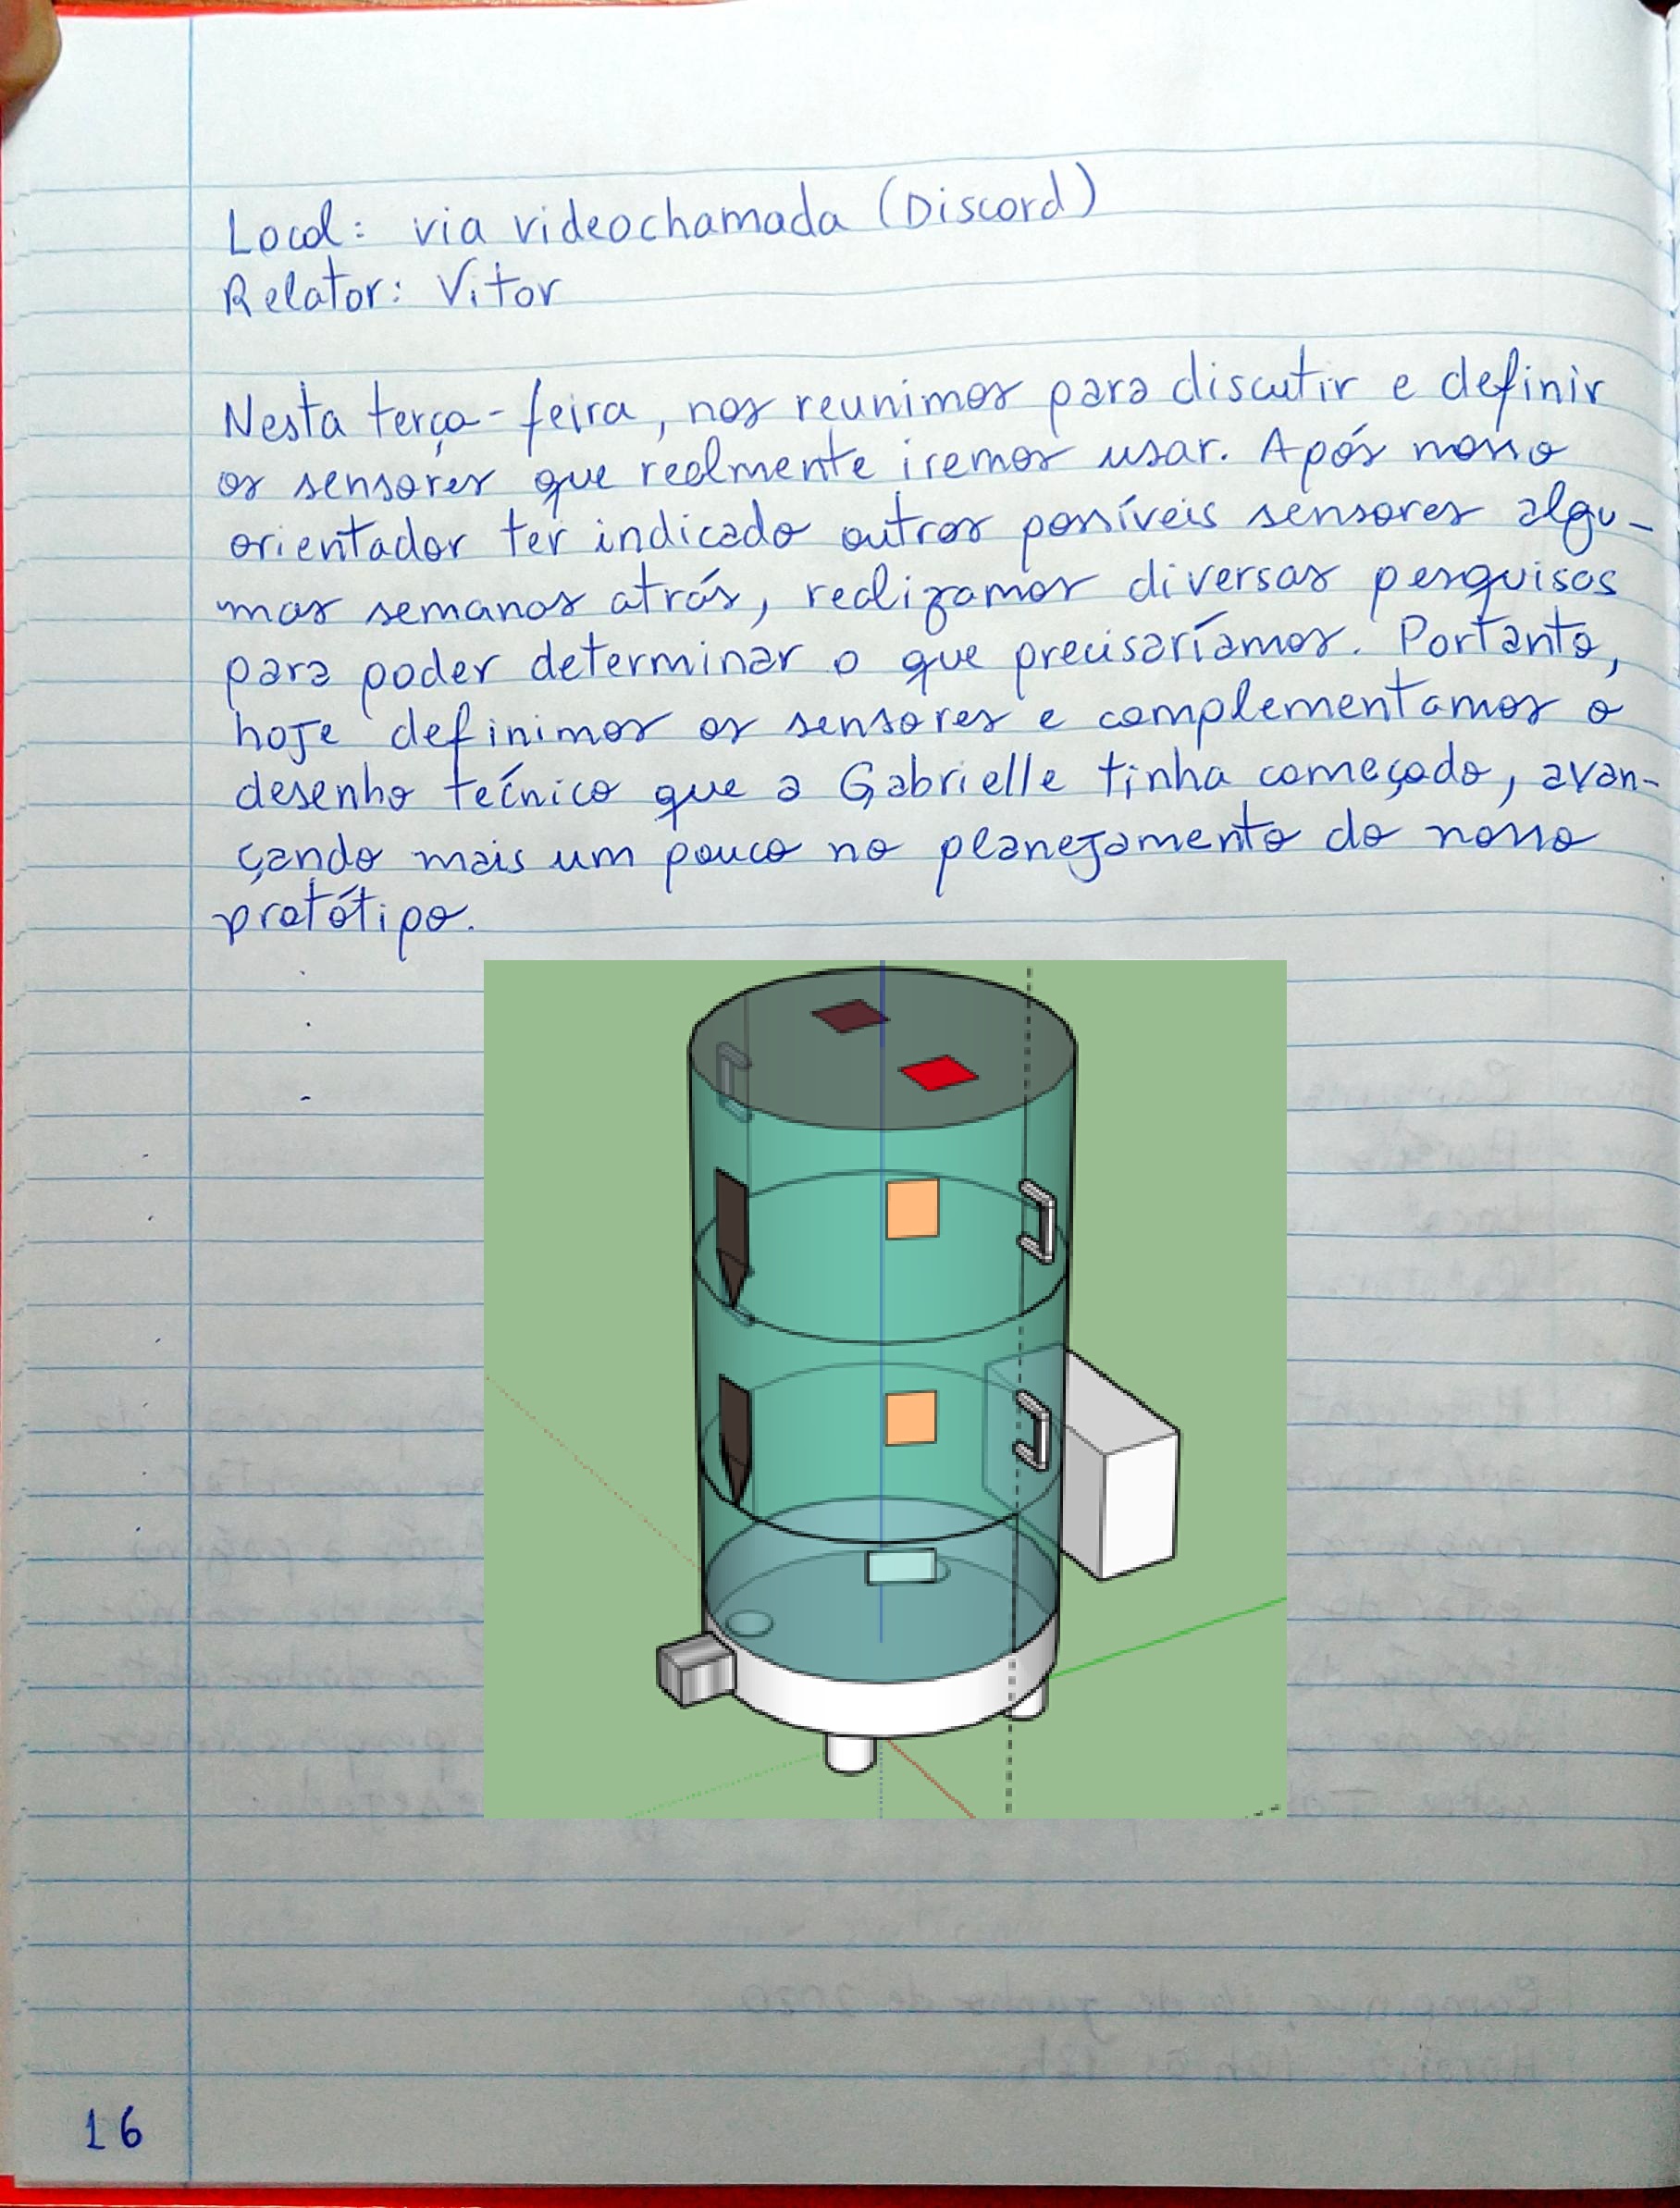 Local: via videochamada (Discord)
Relator: Vitor
Nesta terça-feira, nos reunimos para discutir e definir
os sensores que realmente iremos usar. Após nosso
orientador ter indicado outros possíveis sensores algu-
mas semanas atrás, realizamos diversas pesquisas
para poder determinar o que precisaríamos. Portanto,
hoje definimos os sensores e complementamos o
desenho técnico que a Gabrielle tinha começado, avan-
çando mais um pouco no planejamento do nosso
protótipo.
16